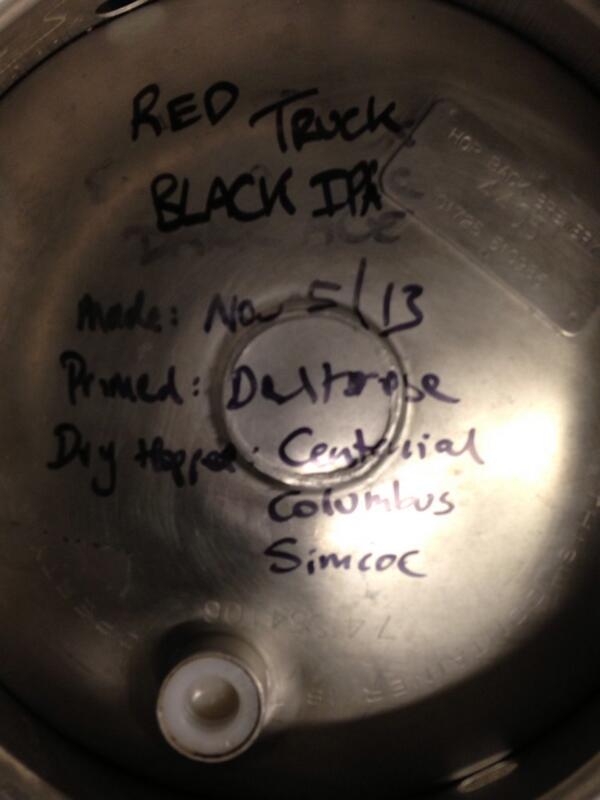 RED TRUCK
BLACK IPA
HOP BACK BREWERY
Made: Nov 5/13
Primed: Dextrose
Dry Hopped: Centennial
Columbus
Simcoe